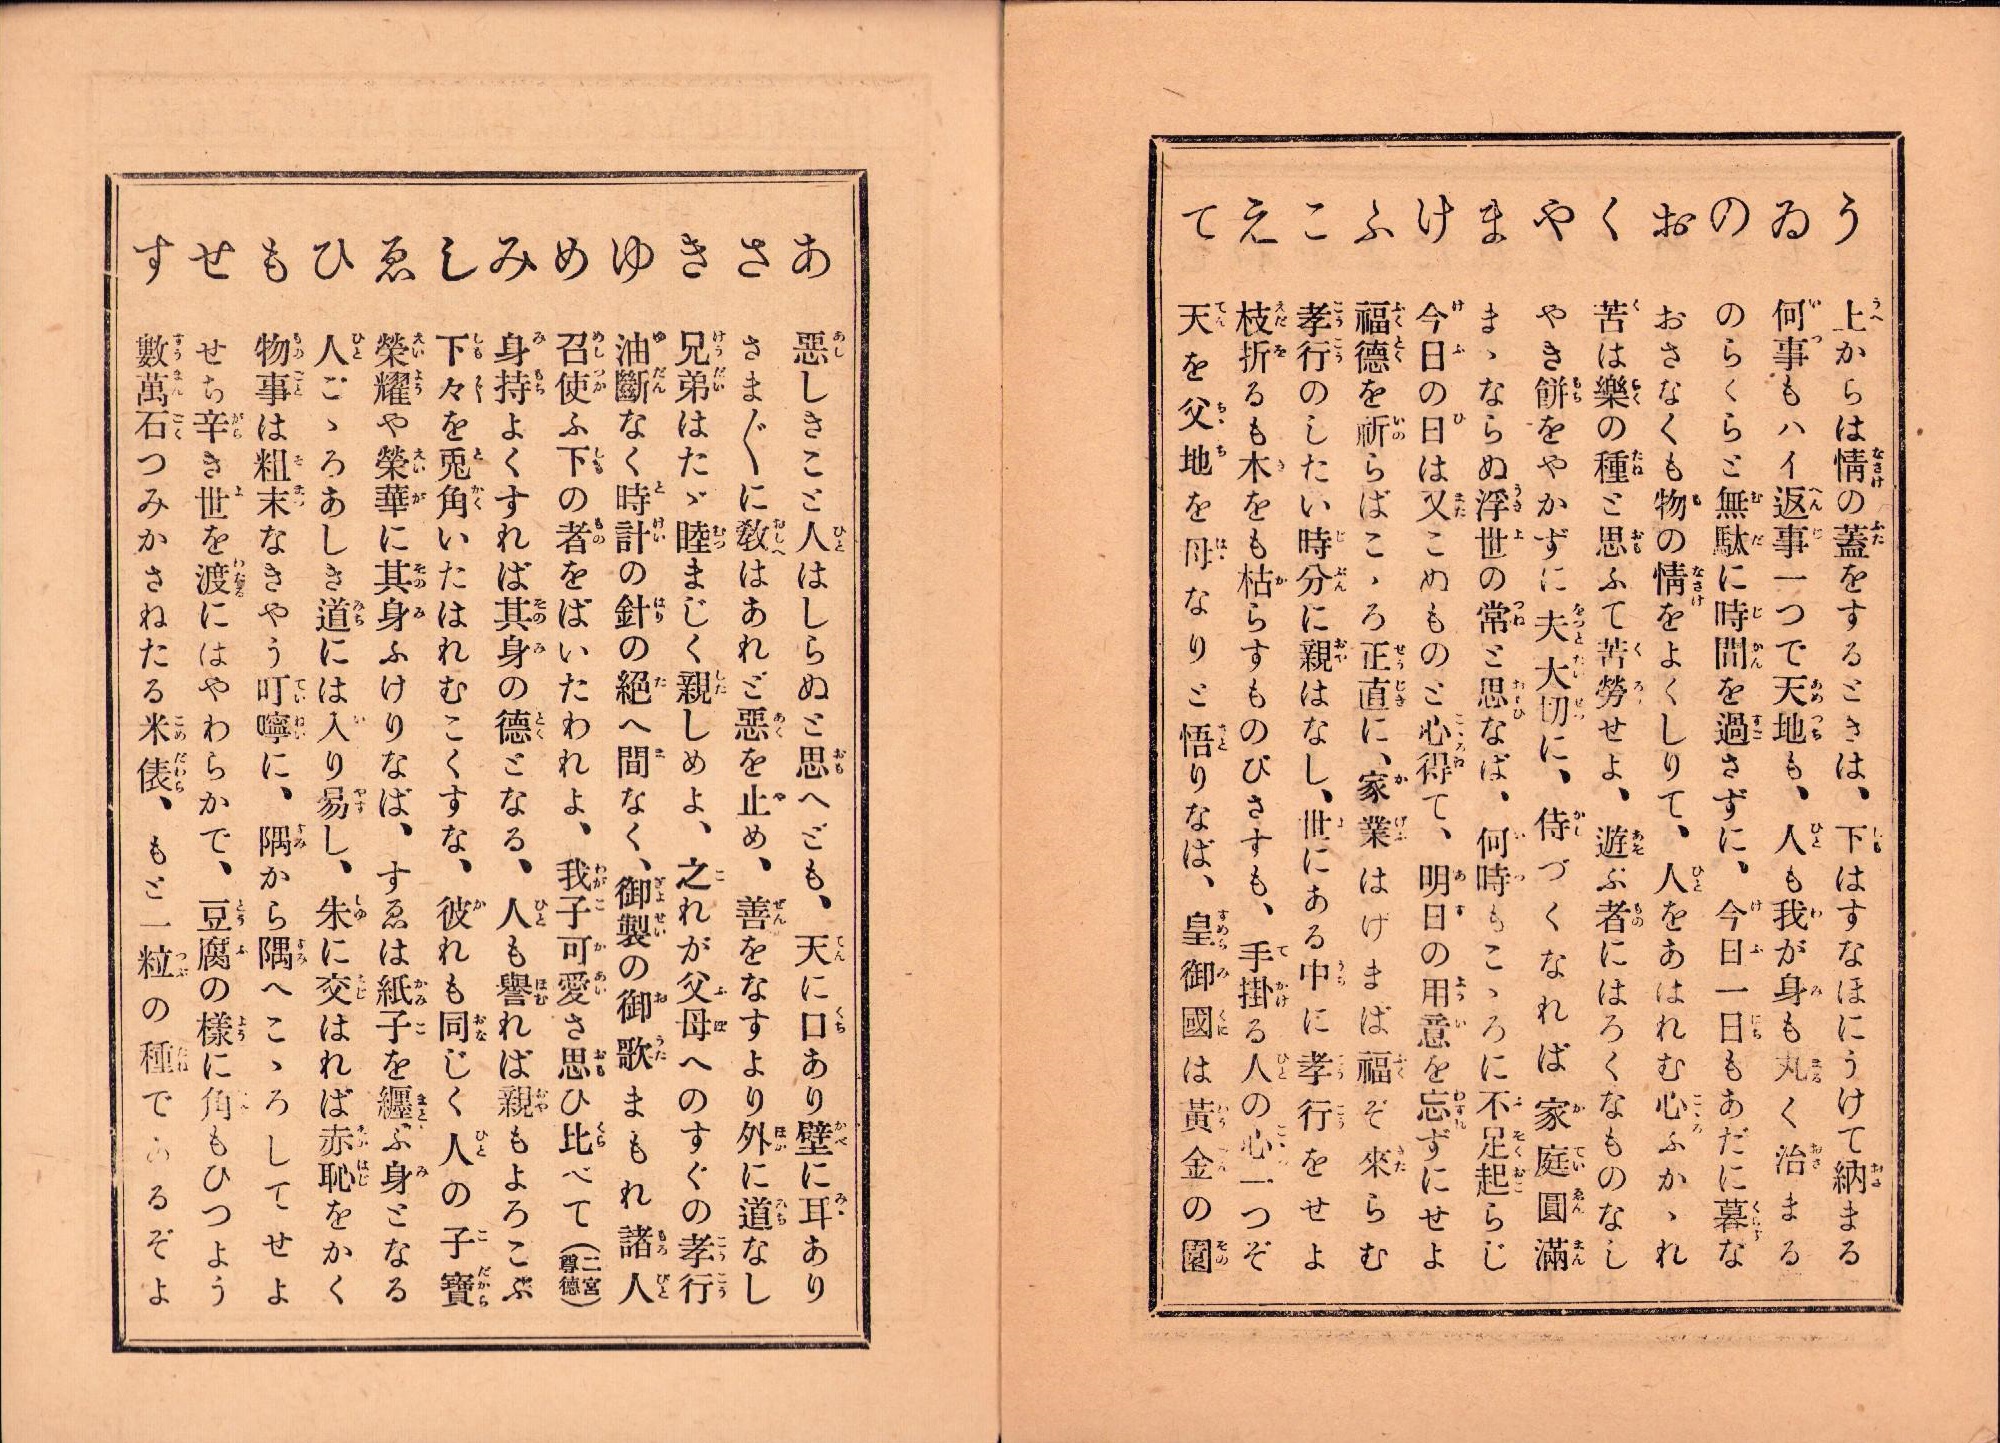 う 上からは情の蓋をするときは、下はすなほにうけて納まる
ゐ 何事もハイ返事一つで天地も、人も我が身も丸く治まる
の のらくらと無駄に時間を過さずに、今日一日もあだに暮な
お おさなくも物の情をよくしりて、人をあはれむ心ふかゝれ
く 苦は樂の種と思ふて苦勞せよ、遊ぶ者にはろくなものなし
や やき餅をやかずに夫大切に、侍づくなれば家庭圓滿
ま まゝならぬ浮世の常と思なば、何時もこゝろに不足起らじ
け 今日の日は又こぬものと心得て、明日の用意を忘ずにせよ
ふ 福德を祈らばこゝろ正直に、家業はげまば福ぞ來らむ
こ 孝行のしたい時分に親はなし、世にある中に孝行をせよ
え 枝折るも木をも枯らすものびさすも、手掛る人の心一つぞ
て 天を父地を母なりと悟りなば、皇御國は黃金の園
あ 惡しきこと人はしらぬと思へども、天に口あり壁に耳あり
さ さま〴〵に敎はあれど惡を止め、善をなすより外に道なし
き 兄弟はたゞ睦まじく親しめよ、之れが父母へのすぐの孝行
ゆ 油斷なく時計の針の絕へ間なく、御製の御歌まもれ諸人
め 召使ふ下の者をばいたわれよ、我子可愛さ思ひ比べて(二宮尊德)
み 身持よくすれば其身の德となる、人も譽れば親もよろこぶ
し 下々を兎角いたはれむこくすな、彼れも同じく人の子寶
ゑ 榮耀や榮華に其身ふけりなば、すゑは紙子を纒ぶ身となる
ひ 人ごゝろあしき道には入り易し、朱に交はれば赤恥をかく
も 物事は粗末なきやう叮嚀に、隅から隅へこゝろしてせよ
せ せち辛き世を渡にはやわらかで、豆腐の樣に角もひつよう
す 數萬石つみかさねたる米俵、もと一粒の種であるぞよ